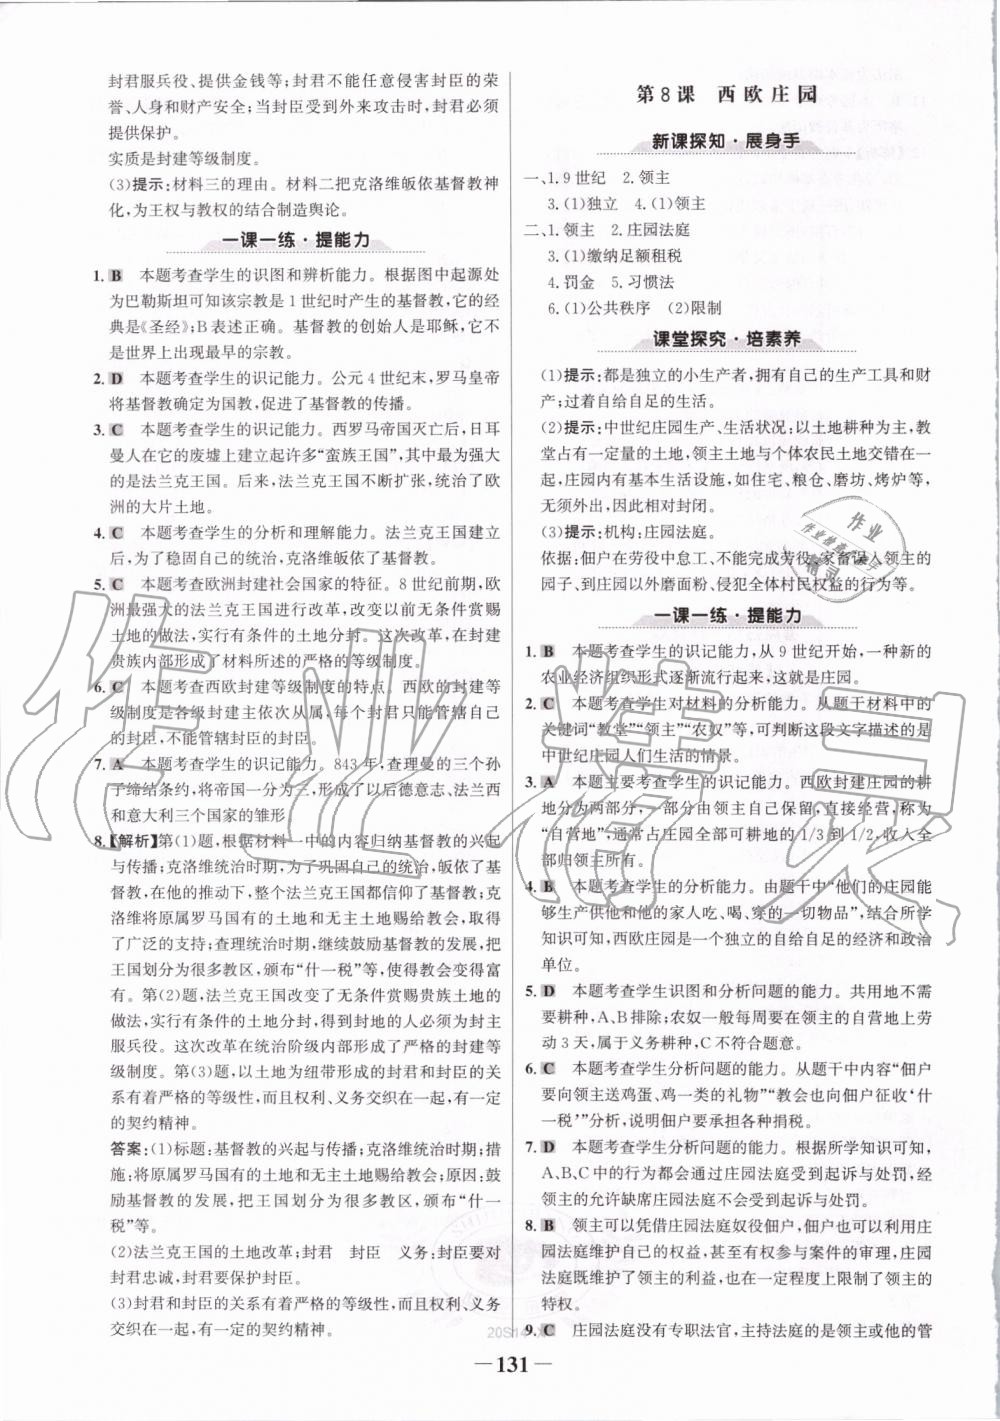 封君服兵役、提供金钱等;封君不能任意侵害封臣的荣
誉、人身和财产安全;当封臣受到外来攻击时,封君必须
提供保护。
实质是封建等级制度。
(3)提示:材料三的理由。材料二把克洛维皈依基督教神
化,为王权与教权的结合制造舆论。
一课一练·提能力
1. B 本题考查学生的识图和辨析能力。根据图中起源处
为巴勒斯坦可知该宗教是1世纪时产生的基督教,它的经
典是《圣经》;B表述正确。基督教的创始人是耶稣,它不
是世界上出现最早的宗教。
2. D 本题考查学生的识记能力。公元4世纪末,罗马皇帝
将基督教确定为国教,促进了基督教的传播。
3. C 本题考查学生的识记能力。西罗马帝国灭亡后,日耳
曼人在它的废墟上建立起许多“蛮族王国”,其中最为强大
的是法兰克王国。后来,法兰克王国不断扩张,统治了欧
洲的大片土地。
4. C 本题考查学生的分析和理解能力。法兰克王国建立
后,为了稳固自己的统治,克洛维皈依了基督教。
5. C 本题考查欧洲封建社会国家的特征。8世纪前期,欧
洲最强大的法兰克王国进行改革,改变以前无条件赏赐
土地的做法,实行有条件的土地分封。这次改革,在封建
贵族内部形成了材料所述的严格的等级制度。
6. C 本题考查西欧封建等级制度的特点。西欧的封建等
级制度是各级封建主依次从属,每个封君只能管辖自己
的封臣,不能管辖封臣的封臣。
7. A 本题考查学生的识记能力。843年,查理曼的三个孙
子缔结条约,将帝国一分为三,形成了以后德意志、法兰西
和意大利三个国家的雏形。
8.【解析】第(1)题,根据材料一中的内容归纳基督教的兴起
与传播;克洛维统治时期,为了巩固自己的统治,皈依了基
督教,在他的推动下,整个法兰克王国都信仰了基督教;克
洛维将原属罗马国有的土地和无主土地赐给教会,取得
了广泛的支持;查理统治时期,继续鼓励基督教的发展,把
王国划分为很多教区,颁布“什一税”等,使得教会变得富
有。第(2)题,法兰克王国改变了无条件赏赐贵族土地的
做法,实行有条件的土地分封,得到封地的人必须为封主
服兵役。这次改革在统治阶级内部形成了严格的封建等
级制度。第(3)题,以土地为纽带形成的封君和封臣的关
系有着严格的等级性,而且权利、义务交织在一起,有一定
的契约精神。
答案:(1)标题:基督教的兴起与传播;克洛维统治时期:措
施:将原属罗马国有的土地和无主土地赐给教会;原因:鼓
励基督教的发展,把王国划分为很多教区,颁布“什一
税”等。
(2)法兰克王国的土地改革;封君 封臣 义务;封臣要对
封君忠诚,封君要保护封臣。
(3)封君和封臣的关系有着严格的等级性,而且权利、义务
交织在一起,有一定的契约精神。
第8课 西欧庄园
新课探知·展身手
一、1.9世纪 2.领主
3.(1)独立 4.(1)领主
二、1.领主 2.庄园法庭
3.(1)缴纳足额租税
4.罚金 5.习惯法
6.(1)公共秩序 (2)限制
课堂探究·培素养
(1)提示:都是独立的小生产者,拥有自己的生产工具和财
产;过着自给自足的生活。
(2)提示:中世纪庄园生产、生活状况:以土地耕种为主,教
堂占有一定量的土地,领主土地与个体农民土地交错在一
起,庄园内有基本生活设施,如住宅、粮仓、磨坊、烤炉等,
无须外出,因此相对封闭。
(3)提示:机构:庄园法庭。
依据:佃户在劳役中怠工、不能完成劳役、家畜误入领主的
园子、到庄园以外磨面粉、侵犯全体村民权益的行为等。
一课一练·提能力
1. B 本题考查学生的识记能力。从9世纪开始,一种新的
农业经济组织形式逐渐流行起来,这就是庄园。
2. C 本题考查学生对材料的分析能力。从题干材料中的
关键词“教堂”“领主”“农奴”等,可判断这段文字描述的是
中世纪庄园人们生活的情景。
3. A 本题主要考查学生的识记能力。西欧封建庄园的耕
地分为两部分,一部分由领主自己保留,直接经营,称为
“自营地”,通常占庄园全部可耕地的1/3到1/2,收入全
部归领主所有。
4. B 本题考查学生的分析能力。由题干中“他们的庄园能
够生产供他和他的家人吃、喝、穿的一切物品”,结合所学
知识可知,西欧庄园是一个独立的自给自足的经济和政治
单位。
5. D 本题考查学生识图和分析问题的能力。共用地不需
要耕种,A、B排除;农奴一般每周要在领主的自营地上劳
动3天,属于义务耕种,C不符合题意。
6. C 本题考查学生分析问题的能力。从题干中“佃户
要向领主送鸡蛋、鸡一类的礼物”“教会也向佃户征收‘什
一税’”分析,说明佃户要承担各种捐税。
7. D 本题考查学生分析问题的能力。根据所学知识可知,
A、B、C中的行为都会通过庄园法庭受到起诉与处罚,经
领主的允许缺席庄园法庭不会受到起诉与处罚。
8. B 领主可以凭借庄园法庭奴役佃户,但佃户也可以利用庄
园法庭维护自己的权益,甚至有权参与案件的审理,庄园
法庭既维护了领主的利益,也在一定程度上限制了领主的
特权。
9. C 庄园法庭没有专职法官,主持法庭的是领主或他的管
作业
作业检查小助手
精灵
作业精灵
— 131 —